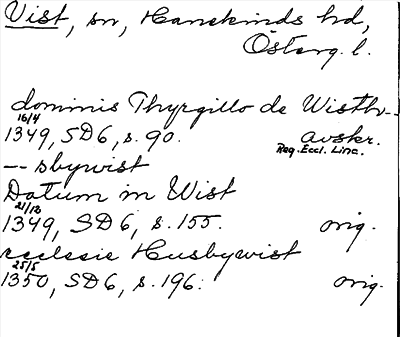 Vist, sn, Hanekinds hd,
Österg. l.
dominis Thyrgillo de Wisth--
16/4
1349, SD6, s. 90. avskr.
Reg. Eccl. Linc.
-- sbywist
Datum in Wist
21/12
1349, SD6, s. 155. orig.
ecclesie Husbywist
25/5
1350, SD6, s. 196. orig.